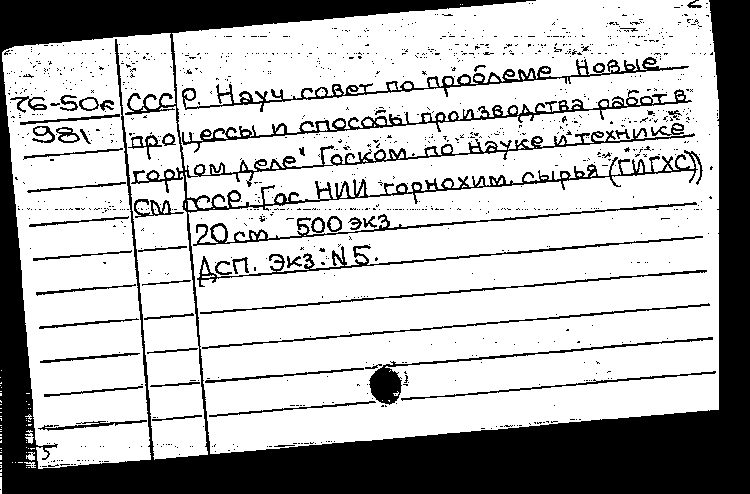 2
76-50с СССР. Науч. совет по проблеме „Новые
981 процессы и способы производства работ в
горном деле" Госком. по науке и технике
СМ СССР. Гос. НИИ горнохим. сырья (ГИГХС).
20 см. 500 экз.
ДСП. Экз. N 5.
5